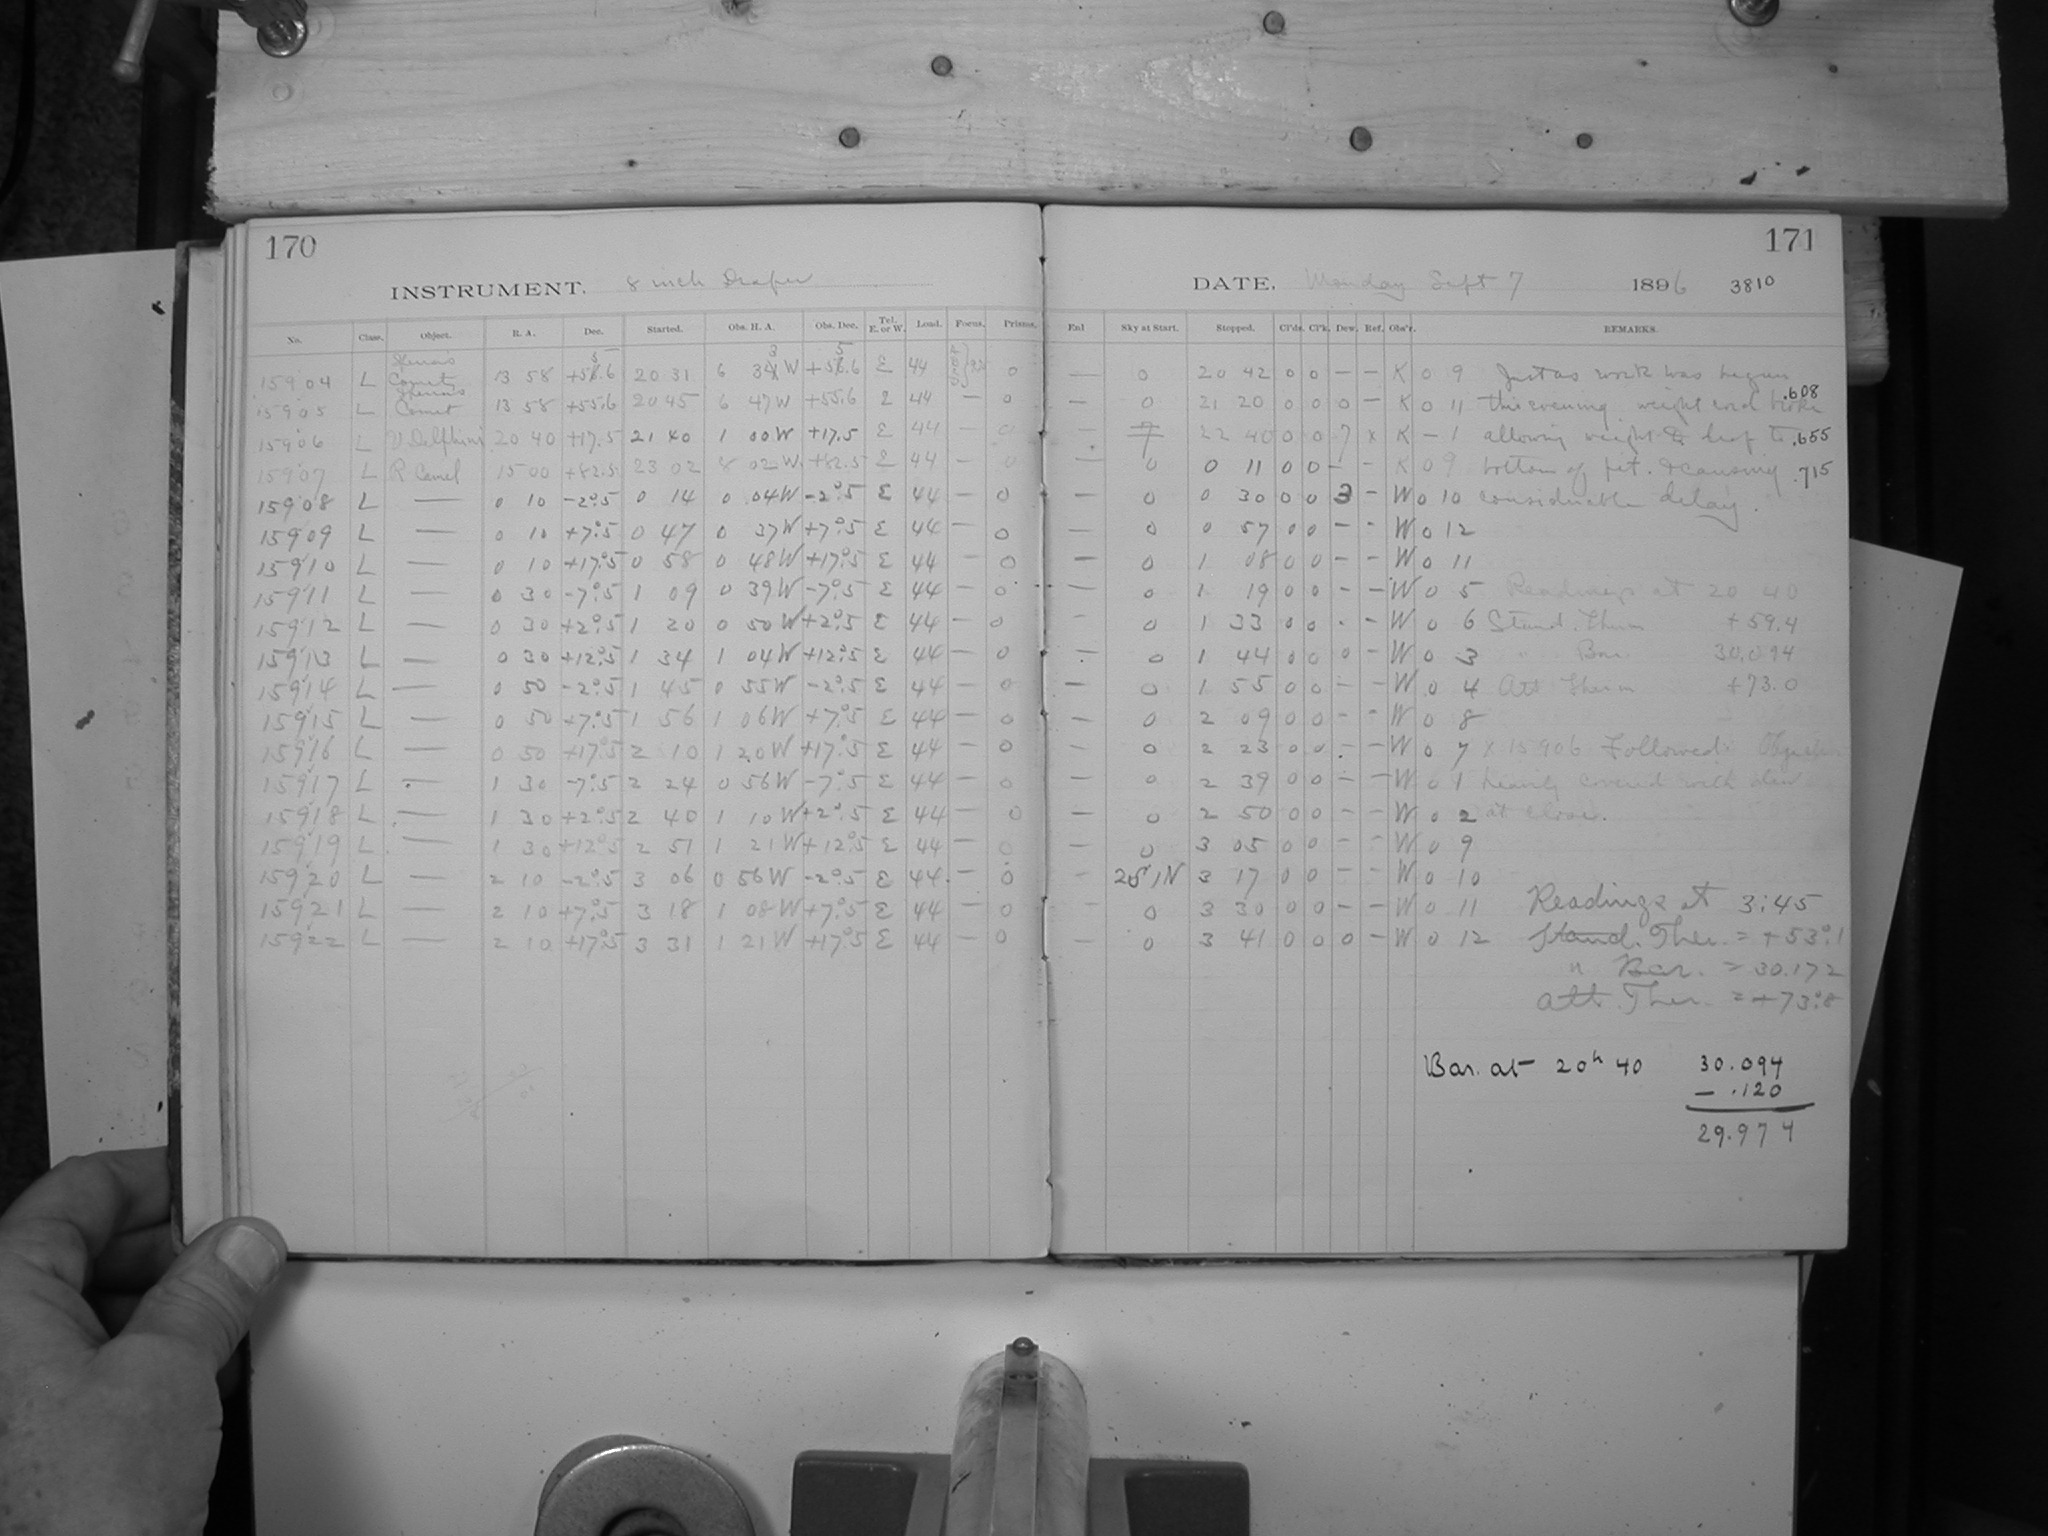 170
INSTRUMENT. 8 inch Draper
No. Class. Object. R. A. Dec. Started. Obs. H. A. Obs. Dec. Tel. E. or W. Load. Focus. Prisms.
15904 L Comet 13 58 20 31 6 W E 44 0
15905 L Comet 13 58 +55.6 20 45 6 47W +55.6 E 44 — 0
15906 L U Delphini 20 40 +17.5 21 40 1 00W +17.5 E 44 — 0
15907 L R Camel 15 00 +82.5 23 02 8 02W +82.5 E 44 — 0
15908 L — 0 10 -2°.5 0 14 0 04W -2°.5 E 44 — 0
15909 L — 0 10 +7°.5 0 47 0 37W +7°.5 E 44 — 0
15910 L — 0 10 +17°.5 0 58 0 48W +17°.5 E 44 — 0
15911 L — 0 30 -7°.5 1 09 0 39W -7°.5 E 44 — 0
15912 L — 0 30 +2°.5 1 20 0 50W +2°.5 E 44 — 0
15913 L — 0 30 +12°.5 1 34 1 04W +12°.5 E 44 — 0
15914 L — 0 50 -2°.5 1 45 0 55W -2°.5 E 44 — 0
15915 L — 0 50 +7°.5 1 56 1 06W +7°.5 E 44 — 0
15916 L — 0 50 +17°.5 2 10 1 20W +17°.5 E 44 — 0
15917 L — 1 30 -7°.5 2 24 0 56W -7°.5 E 44 — 0
15918 L — 1 30 +2°.5 2 40 1 10W +2°.5 E 44 — 0
15919 L — 1 30 +12°.5 2 51 1 21W +12°.5 E 44 — 0
15920 L — 2 10 -2°.5 3 06 0 56W -2°.5 E 44 — 0
15921 L — 2 10 +7°.5 3 18 1 08W +7°.5 E 44 — 0
15922 L — 2 10 +17°.5 3 31 1 21W +17°.5 E 44 — 0
171
DATE. Monday Sept 7 1896 3810
Enl Sky at Start. Stopped. Cl'ds. Cl'k. Dew. Ref. Obs'r. REMARKS.
— 0 20 42 0 0 — — K 0 9 Just as work was begun
.608
— 0 21 20 0 0 0 — K 0 11 this evening weight cord broke
— 7 22 40 0 0 7 x K — 1 allowing weight to drop to .655
— 0 0 11 0 0 — — K 0 9 bottom of pit & causing .715
— 0 0 30 0 0 3 — W 0 10 considerable delay.
— 0 0 57 0 0 — — W 0 12
— 0 1 08 0 0 — — W 0 11
— 0 1 19 0 0 — — W 0 5 Readings at 20 40
— 0 1 33 0 0 — — W 0 6 Stand. Therm +59.4
— 0 1 44 0 0 0 — W 0 3 " Bar 30.094
— 0 1 55 0 0 — — W 0 4 Att Therm +73.0
— 0 2 09 0 0 — — W 0 8
— 0 2 23 0 0 — — W 0 7 x 15906 Followed.
— 0 2 39 0 0 — — W 0 1 nearly covered with dew
— 0 2 50 0 0 — — W 0 2 at close.
— 0 3 05 0 0 — — W 0 9
— 3 17 0 0 — — W 0 10
— 0 3 30 0 0 — — W 0 11 Readings at 3:45
— 0 3 41 0 0 0 — W 0 12 Stand. Ther. = +53°.1
" Bar. = 30.172
Att. Ther. = +73°.8
Bar. at 20h 40 30.094
— .120
29.974